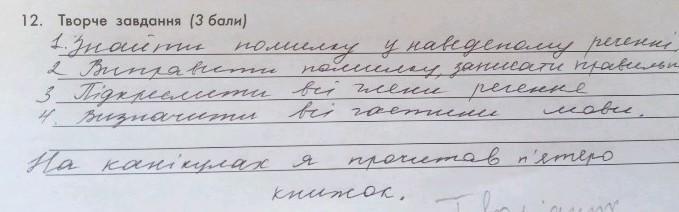 12. Творче завдання (3 бали)
1. Знайти помилку у наведеному реченні,
2 Виправити помилку, записати правильн
3 Підкреслити всі члени речення
4. Визначити всі частини мови.
На канікулах я прочитав п'ятеро
книжок.